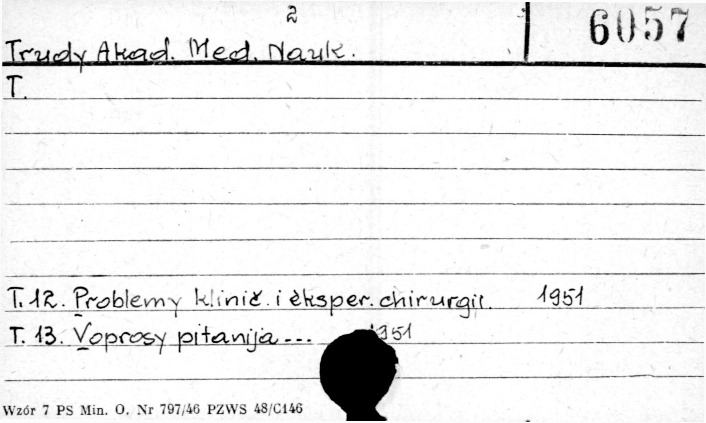 2
6057
Trudy Akad. Med. Nauk.
T.
T. 12. Problemy klinič. i èksper. chirurgii. 1951
T. 13. Voprosy pitanija ... 1951
Wzór 7 PS Min. O. Nr 797/46 PZWS 48/C146